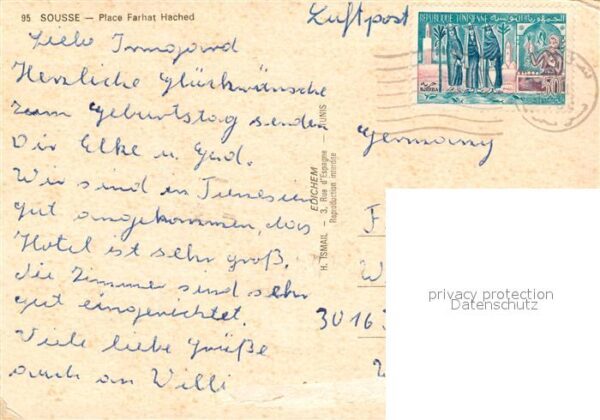 95 SOUSSE — Place Farhat Hached
Liebe Irmgard
Herzliche Glückwünsche
zum Geburtstag senden
Dir Elke u. Gerd.
Wir sind in Tunesien
gut angekommen, das
Hotel ist sehr groß,
die Zimmer sind sehr
gut eingerichtet.
Viele liebe Grüße
auch an Willi
EDICHEM
H. ISMAIL — 3, Rue d'Espagne — TUNIS
Reproduction interdite
Luftpost
REPUBLIQUE TUNISIENNE
الجمهورية التونسية
Germany
F
W
3016
privacy protection
Datenschutz